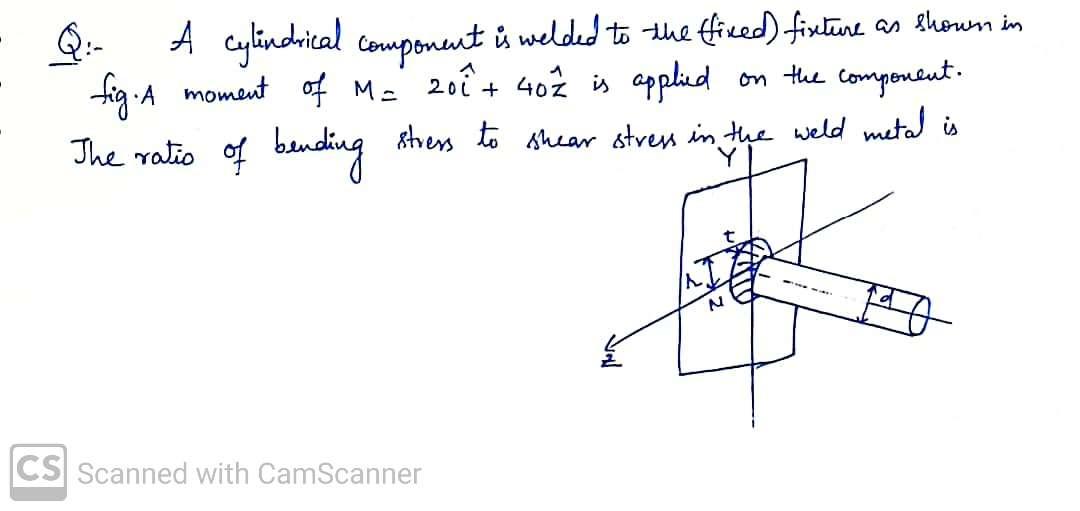 Q:- A cylindrical component is welded to the (fixed) fixture as shown in
fig. A moment of M = 20î + 40ẑ is applied on the component.
The ratio of bending stress to shear stress in the weld metal is
Y
t
r
N
d
Z
CS Scanned with CamScanner